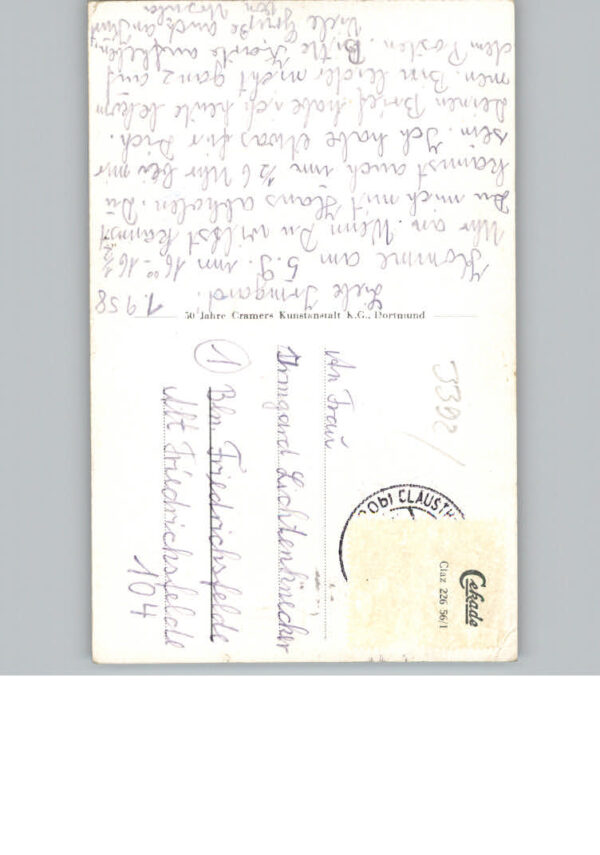 1.9.58
Liebe Irmgard,
Komme am 5.9. um 16⁰⁰-16 1/2
Uhr an. Wenn Du willst kannst
Du mich mit Hans abholen. Du
kannst auch um 1/2 6 Uhr bei mir
sein. Ich habe etwas für Dich.
Deinen Brief habe ich heute bekom
men. Bin leider nicht ganz auf
dem Posten. Bitte Karte aufheben.
Viele Grüße auch an Kurt
von Ursula
50 Jahre Cramers Kunstanstalt K.G., Dortmund
An Frau
Irmgard Lichtenknecker
① Bln. Friedrichsfelde
Alt Friedrichsfelde
104
3392
CLAUSTH
Cekade
Claz 226 56/1